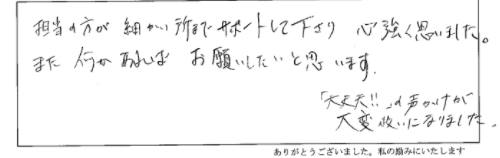 担当の方が細かい所までサポートして下さり 心強く思いました。
また何かあれば お願いしたいと思います。
「大丈夫!!」の声かけが
大変救いになりました。
ありがとうございました。私の励みにいたします